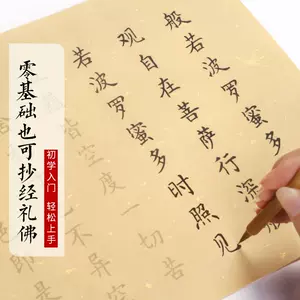 般若波罗蜜多
观自在菩萨行深般
若波罗蜜多时照见
皆空度一切苦
不异空
零基础也可抄经礼佛
初学入门 轻松上手